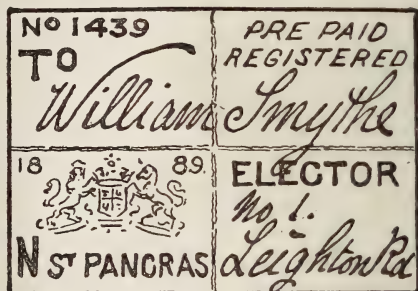 No 1439
TO
PRE PAID
REGISTERED
William Smythe
18 89.
N ST PANCRAS
ELECTOR
No. 1.
Leighton Rd